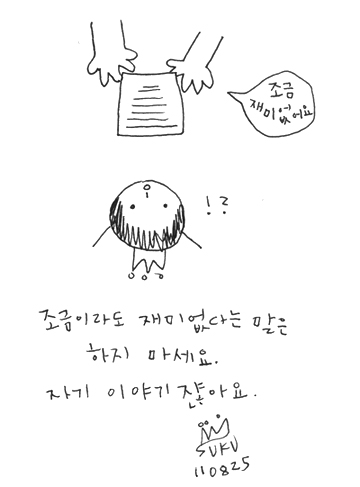 조금
재미없어요
!?
조금이라도 재미없다는 말은
하지 마세요.
자기 이야기 쟎아요.
SUKU
110825